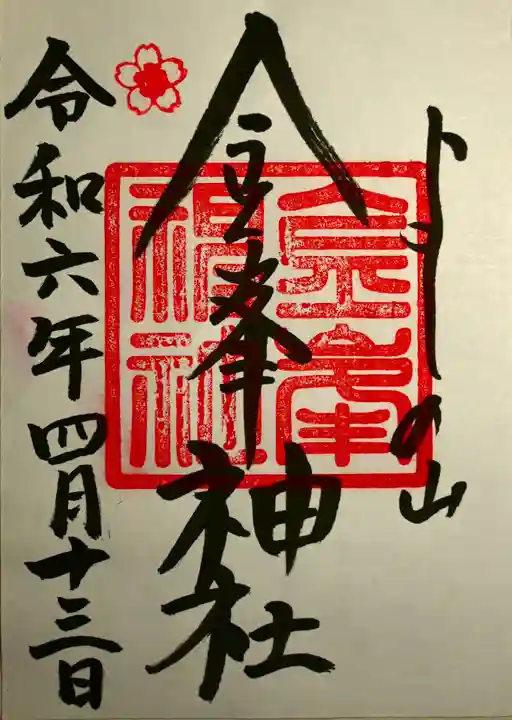 よしの山
金峯神社
令和六年四月十三日
金峯
神社